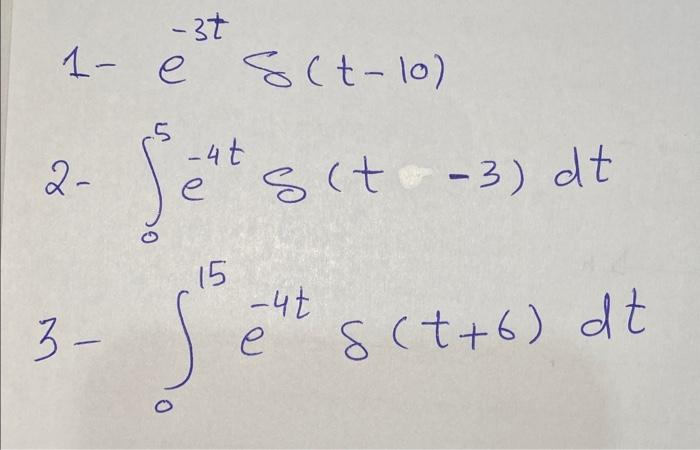 1- e^{-3t} δ(t-10)
2- ∫_0^5 e^{-4t} δ(t -3) dt
3- ∫_0^{15} e^{-4t} δ(t+6) dt